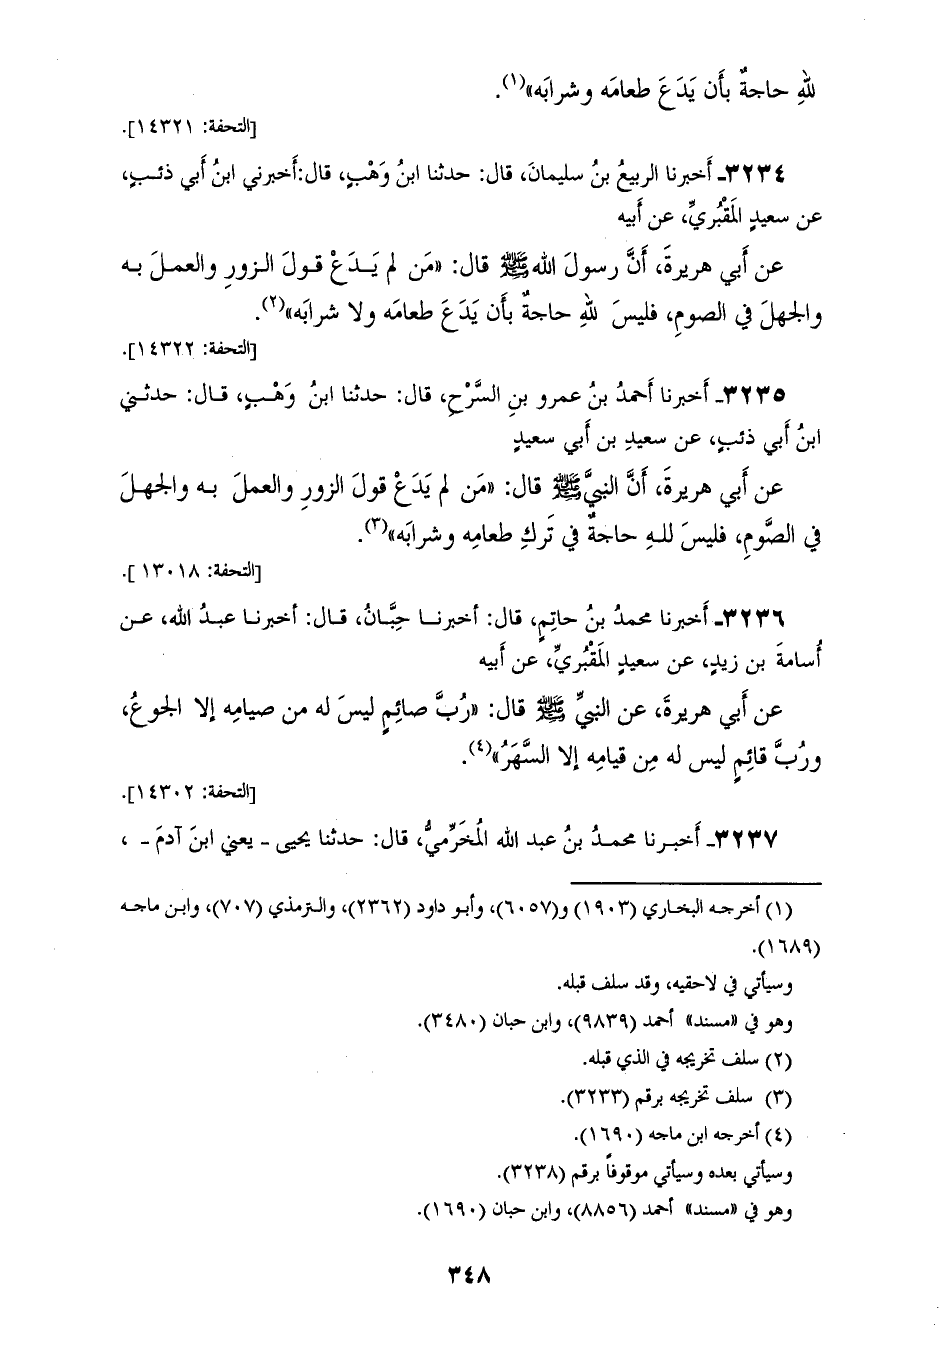 للهِ حاجةٌ بأَن يَدَعَ طعامَه وشرابَه»(١).
[التحفة: ١٤٣٢١].
٣٢٣٤ـ أَخبرنا الربيعُ بنُ سليمانَ، قال: حدثنا ابنُ وَهْبٍ، قال:أَخبرني ابنُ أَبي ذئبٍ،
عن سعيدٍ المَقْبُريِّ، عن أَبيه
عن أَبي هريرةَ، أَنَّ رسولَ الله ﷺ قال: «مَن لم يَدَعْ قولَ الزورِ والعملَ به
والجهلَ في الصومِ، فليسَ للهِ حاجةٌ بأَن يَدَعَ طعامَه ولا شرابَه»(٢).
[التحفة: ١٤٣٢٢].
٣٢٣٥ـ أَخبرنا أَحمدُ بنُ عمرو بنِ السَّرْحِ، قال: حدثنا ابنُ وَهْبٍ، قال: حدثني
ابنُ أَبي ذئبٍ، عن سعيدِ بن أَبي سعيدٍ
عن أَبي هريرةَ، أَنَّ النبيَّ ﷺ قال: «مَن لم يَدَعْ قولَ الزورِ والعملَ به والجهلَ
في الصَّومِ، فليسَ للهِ حاجةٌ في تَركِ طعامِه وشرابَه»(٣).
[التحفة: ١٣٠١٨ ].
٣٢٣٦ـ أَخبرنا محمدُ بنُ حاتِمٍ، قال: أخبرنا حِبَّانُ، قال: أخبرنا عبدُ الله، عن
أُسامةَ بن زيدٍ، عن سعيدٍ المَقْبُريِّ، عن أَبيه
عن أَبي هريرةَ، عن النبيِّ ﷺ قال: «رُبَّ صائِمٍ ليسَ له من صيامِه إلا الجوعُ،
ورُبَّ قائِمٍ ليس له مِن قيامِه إلا السَّهَرُ»(٤).
[التحفة: ١٤٣٠٢].
٣٢٣٧ـ أَخبرنا محمدُ بنُ عبد الله المُخَرِّميُّ، قال: حدثنا يحيى ـ يعني ابنَ آدمَ ـ ،
(١) أخرجه البخاري (١٩٠٣) و(٦٠٥٧)، وأبو داود (٢٣٦٢)، والترمذي (٧٠٧)، وابن ماجه
(١٦٨٩).
وسيأتي في لاحقيه، وقد سلف قبله.
وهو في «مسند» أحمد (٩٨٣٩)، وابن حبان (٣٤٨٠).
(٢) سلف تخريجه في الذي قبله.
(٣) سلف تخريجه برقم (٣٢٣٣).
(٤) أخرجه ابن ماجه (١٦٩٠).
وسيأتي بعده وسيأتي موقوفاً برقم (٣٢٣٨).
وهو في «مسند» أحمد (٨٨٥٦)، وابن حبان (١٦٩٠).
٣٤٨